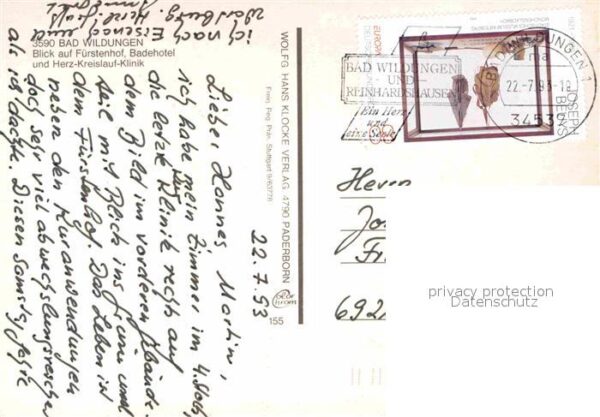 3590 BAD WILDUNGEN
Blick auf Fürstenhof, Badehotel
und Herz-Kreislauf-Klinik
WOLFG HANS KLOCKE VERLAG 4790 PADERBORN
155
22.7.93
Lieber Hannes, Martin,
ich habe mein Zimmer im 4. Stock,
die letzte Klinik rechts auf
dem Bild im vorderen Gebäude.
Blick ins Grüne und
dem Fürstenhof. Das Leben ist
neben den Kuranwendungen
doch sehr viel abwechslungsreicher
als ich dachte. Diesen Samstag
ich nach Eisenach und
Wartburg. Herzl.
BAD WILDUNGEN
UND
REINHARDSHAUSEN
Ein Herz
und
eine Seele
BAD WILDUNGEN 1
ma
22.-7.93-18
34537
EUROPA
JOSEPH
BEUYS
Herrn
Jo
Fr
692
privacy protection
Datenschutz